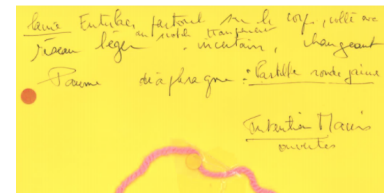 Entubée, partout sur le corps, collé avec
un scotch transparent
réseau léger . incertain, changeant
Paume diaphragme : Pastille ronde jaune
Intention Mains
ouvertes